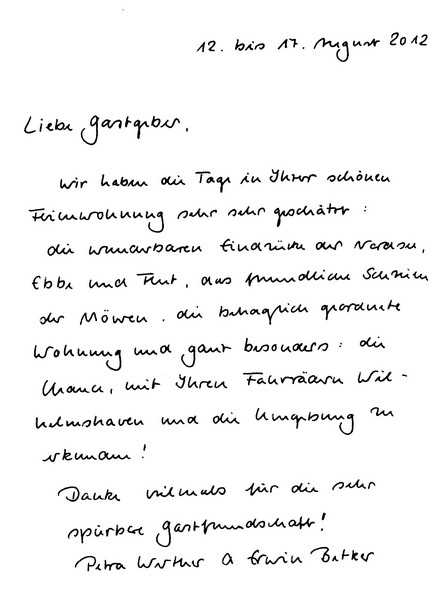 12. bis 17. August 2012
Liebe Gastgeber,
wir haben die Tage in Ihrer schönen
Ferienwohnung sehr sehr geschätzt :
die wunderbaren Eindrücke der Nordsee,
Ebbe und Flut, das freundliche Schreien
der Möwen, die behaglich geordnete
Wohnung und ganz besonders : die
Chance, mit Ihren Fahrrädern Wil-
helmshaven und die Umgebung zu
erkunden !
Danke vielmals für die sehr
spürbare Gastfreundschaft !
Petra Werther & Erwin Betker